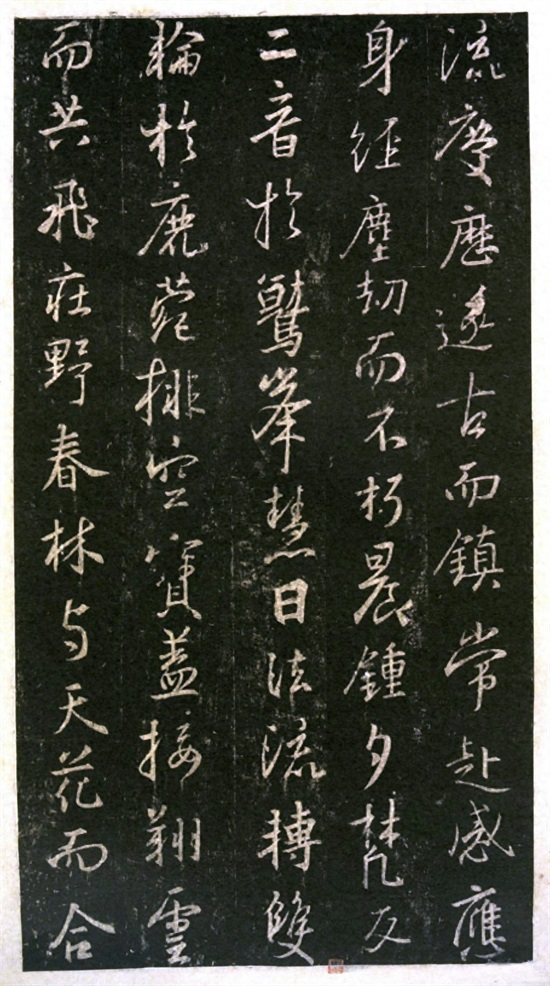 流慶歷遂古而鎮常赴感應
身經塵劫而不朽晨鍾夕梵交
二音於鷲峯慧日法流轉雙
輪於鹿菀排空寶蓋接翔雲
而共飛莊野春林与天花而合